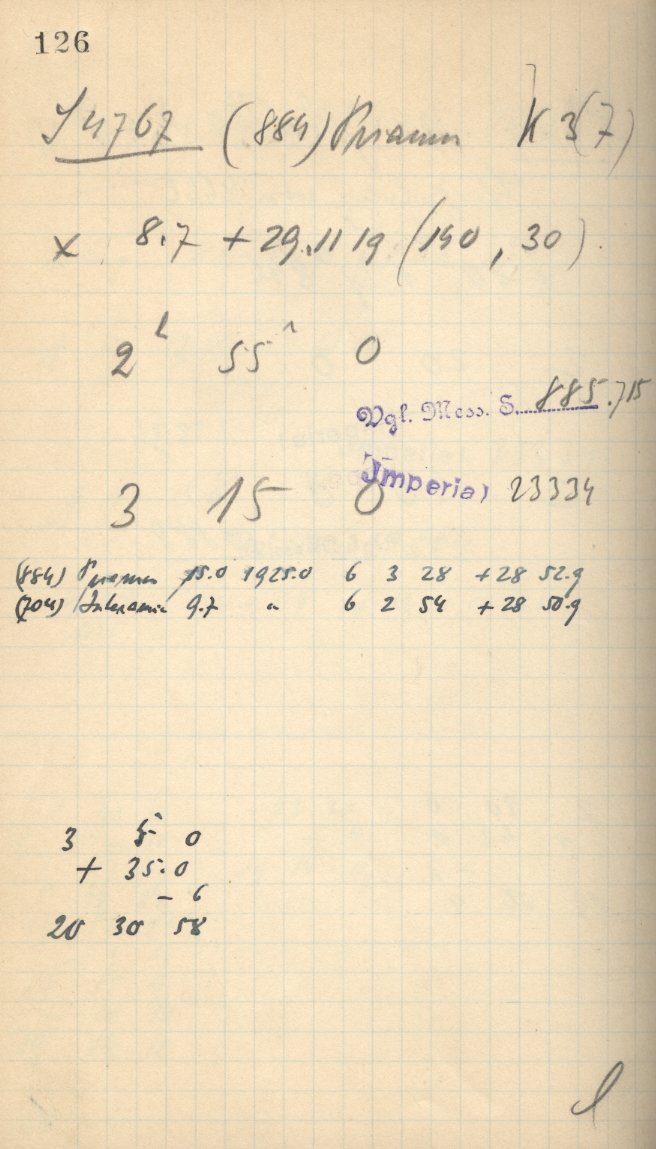 126
J 4767 (884) Priamus K 3(7)
x 8.7 + 29.11 19 (140, 30)
2 h 55 m 0
Vgl. Mess. S. 885.715
3 15 0
Imperial 23334
(884) Priamus 15.0 1925.0 6 3 28 +28 52.9
(704) Interamnia 9.7 " 6 2 54 +28 50.9
3 5 0
+ 35.0
- 6
20 30 58